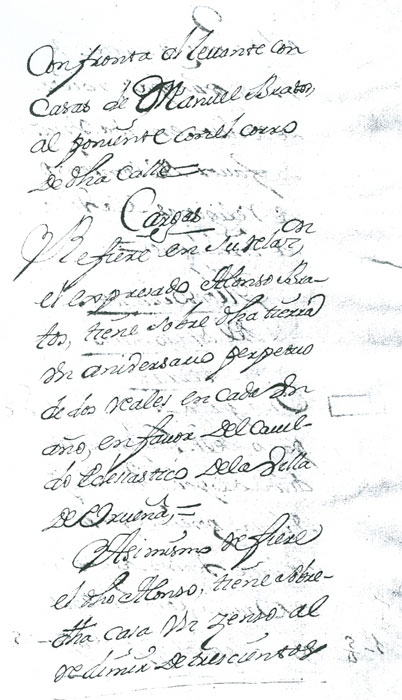 Confronta al levante con
Casas de Manuel Bratos,
al poniente con el corro
de dha Calle =
Cargas
Refiere en su relaz.on
el expresado Alonso Bra-
tos, tiene sobre dha tierra
Un aniversario perpetuo
de dos reales en cada Un
año, en favor del Cavil-
do Eclesiastico de la Villa
de Urueña, =
Asimismo refiere
el dho Alonso, tiene sobre
dha casa Un zenso al
redimir de trescientos